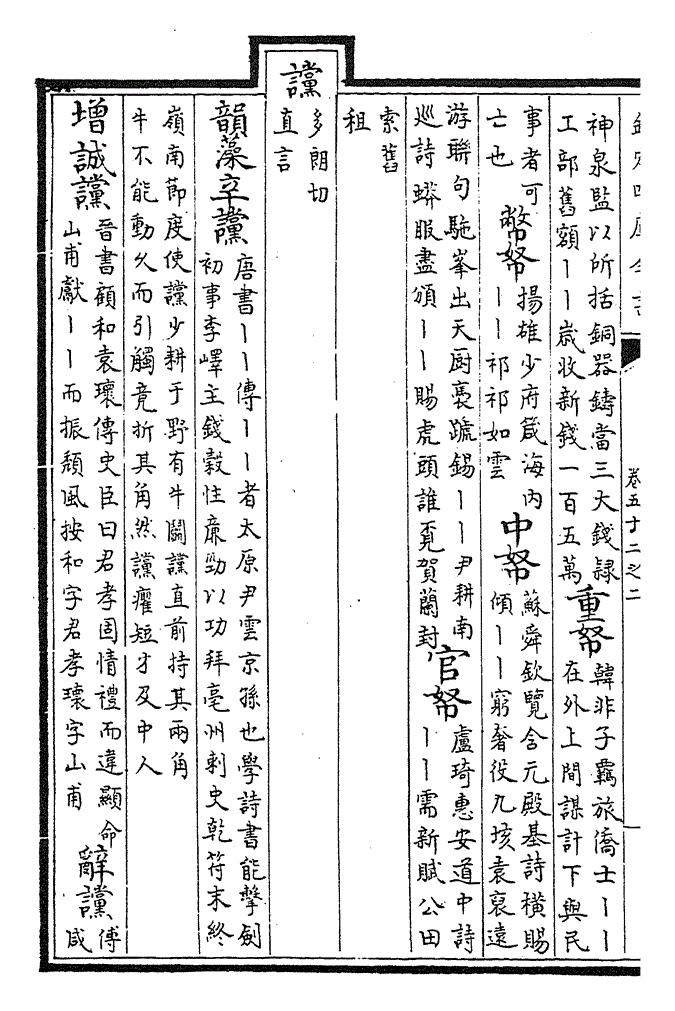 欽定四庫全書
卷五十二之二
神泉監以所括銅器鑄當三大錢隸
工部舊額丨丨歲收新錢一百五萬
重帑
韓非子羈旅僑士丨丨
在外上間謀計下與民
事者可
亡也
幣帑
揚雄少府箴海内
丨丨祁祁如雲
中帑
蘇舜欽覽含元殿基詩橫賜
傾丨丨窮奢役九垓袁裒遠
游聯句駞峯出天厨褭蹏錫丨丨尹耕南
巡詩蟒服盡頒丨丨賜虎頭誰覓賀蘭封
官帑
盧琦惠安道中詩
丨丨需新賦公田
索舊
租
讜
多朗切
直言
韻藻辛讜
唐書丨丨傳丨丨者太原尹雲京孫也學詩書能擊劍
初事李嶧主錢穀性廉勁以功拜亳州刺史乾符末終
嶺南節度使讜少耕于野有牛鬭讜直前持其兩角
牛不能動久而引觸竟折其角然讜癯短才及中人
增誠讜
晉書顧和袁瓌傳史臣曰君孝固情禮而違顯命
山甫獻丨丨而振頹風按和字君孝瓌字山甫
辭讜
傅
咸